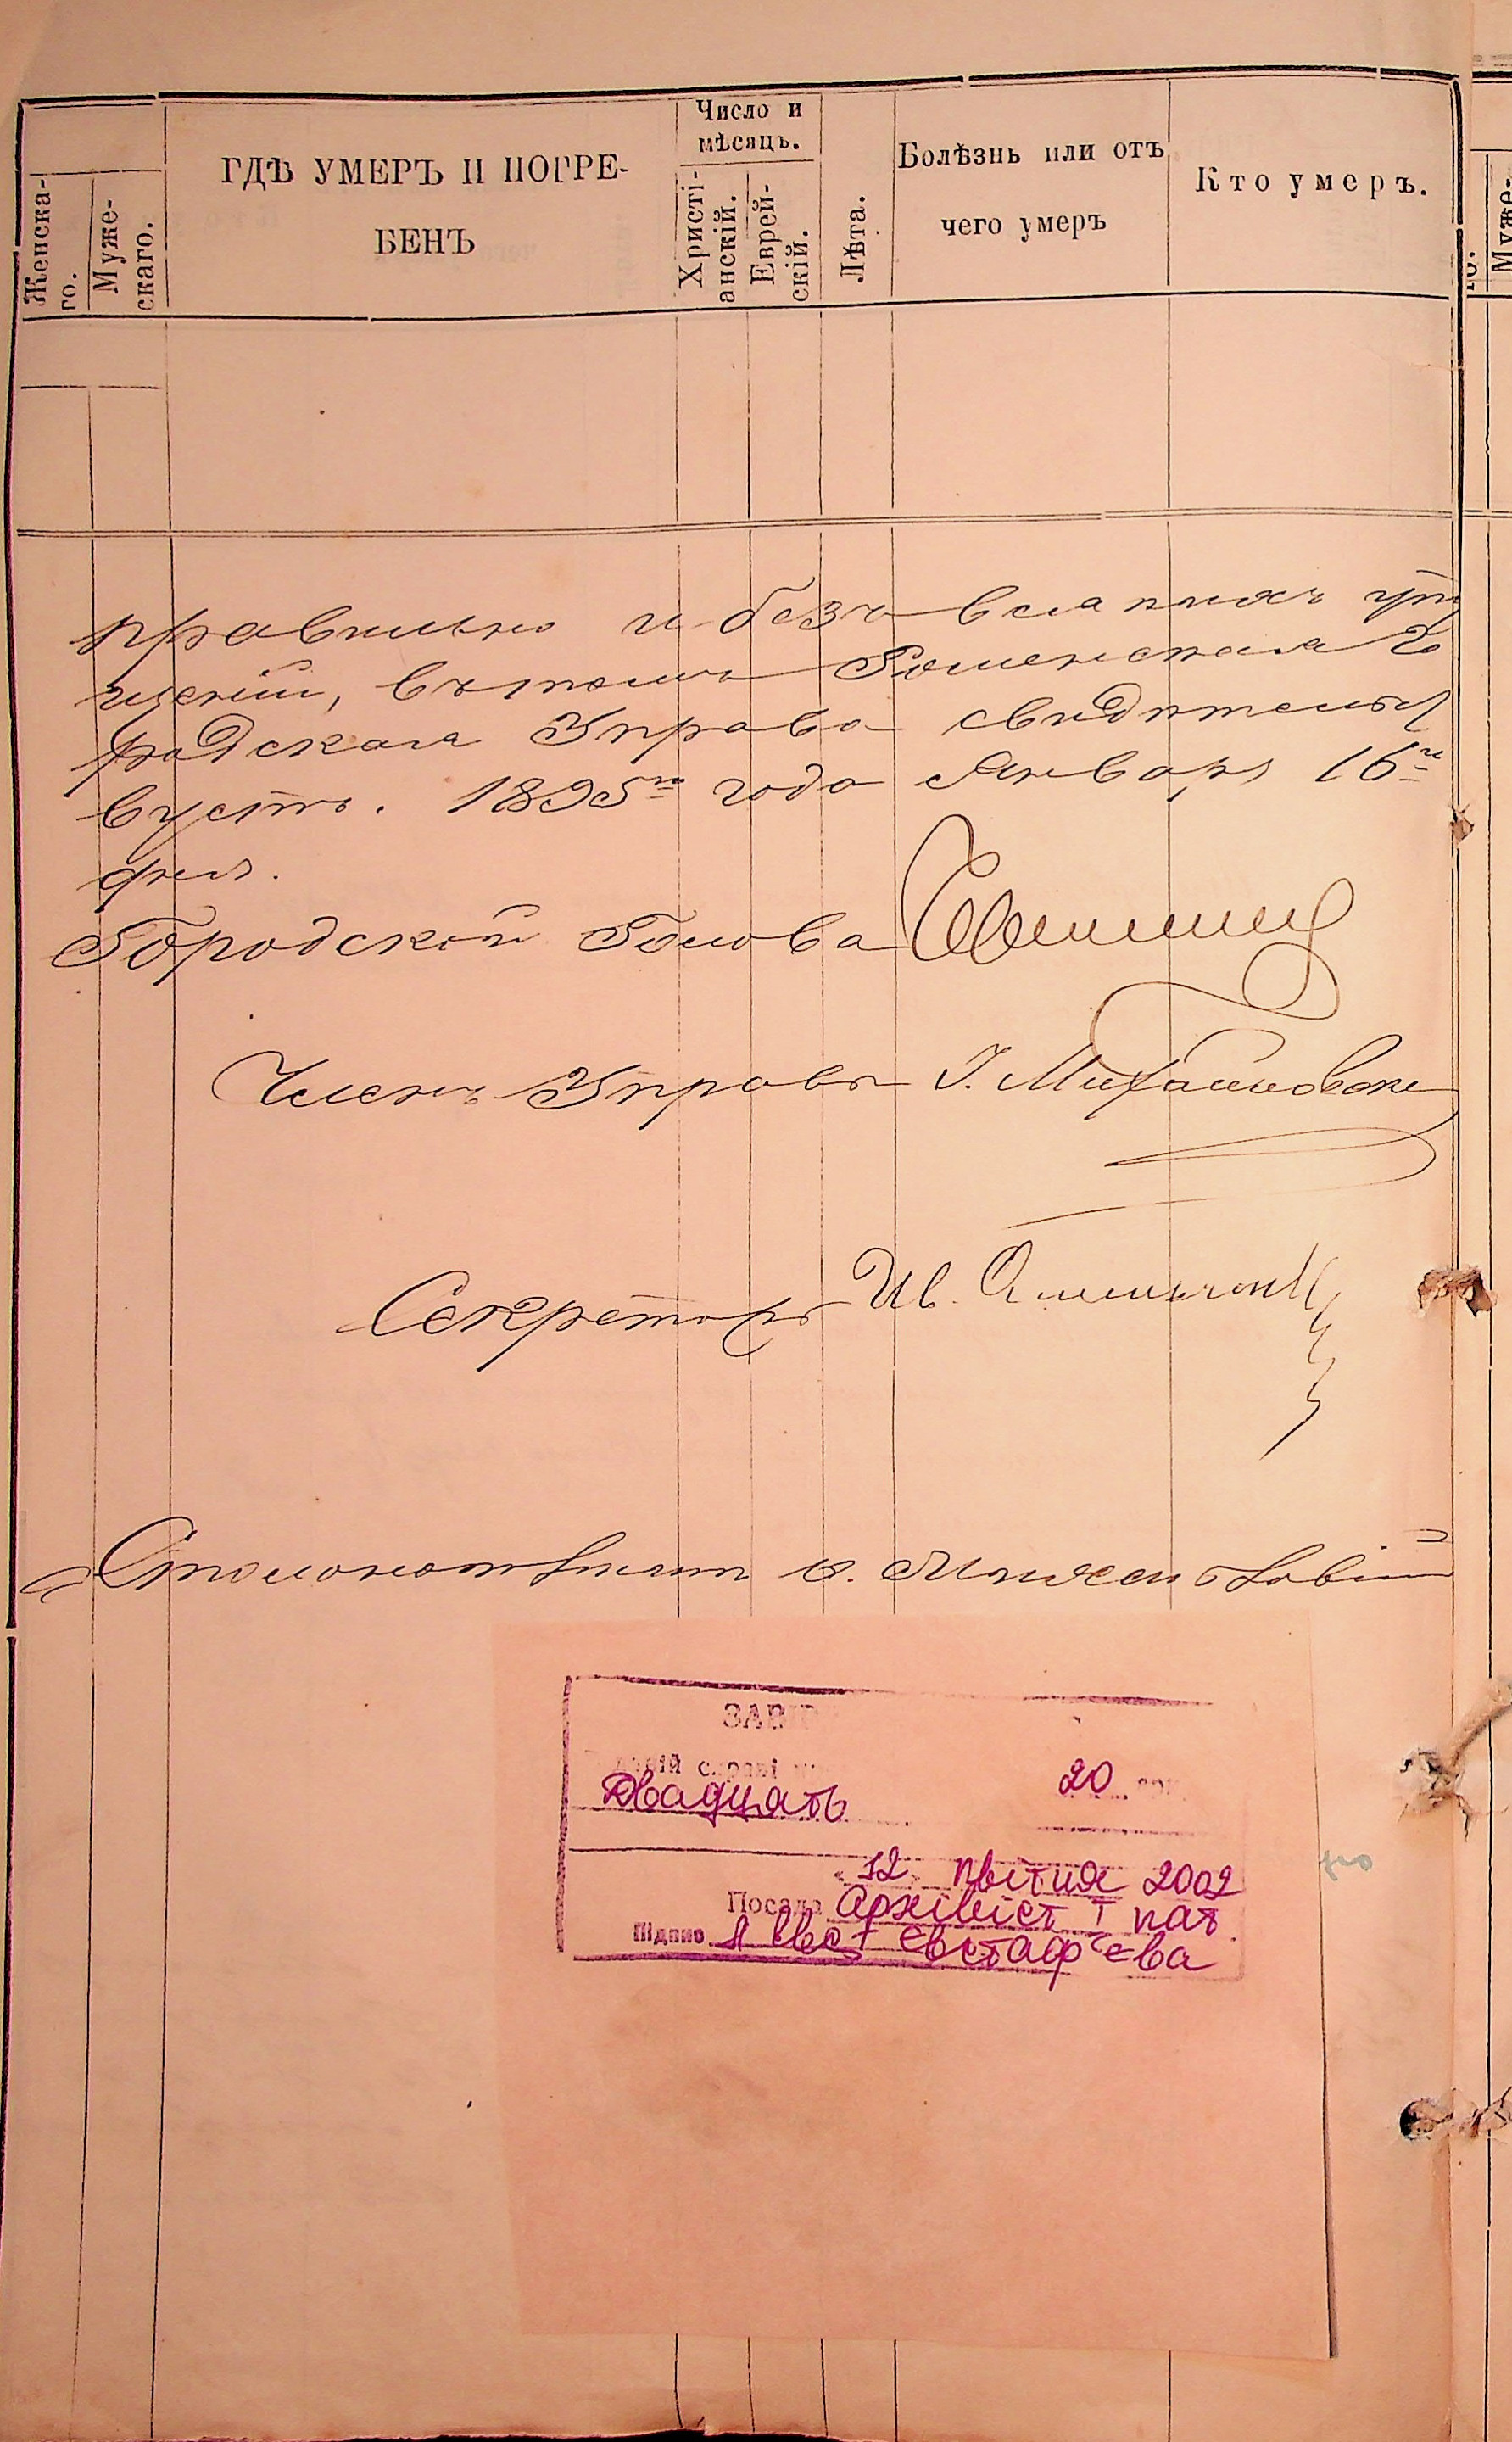 Женска-
го.
Муже-
скаго.
ГДѢ УМЕРЪ И ПОГРЕ-
БЕНЪ
Число и
мѣсяцъ.
Христі-
анскій.
Еврей-
скій.
Лѣта.
Болѣзнь или отъ
чего умеръ
Кто умеръ.
Муже-
правильно и безъ всякихъ
щеній, въ томъ Роменская Го
родская Управа свидѣтель
вуетъ. 1895го года Января 16го
дня.
Городской Голова
Членъ Управы І. Михайловск
Секретарь Ив.
Столоначальникъ
ЗАВІР
справі
Двадцять 20
„12„ квітня 2002
Посада Архівіст І кат.
Підпис Євстаф'єва